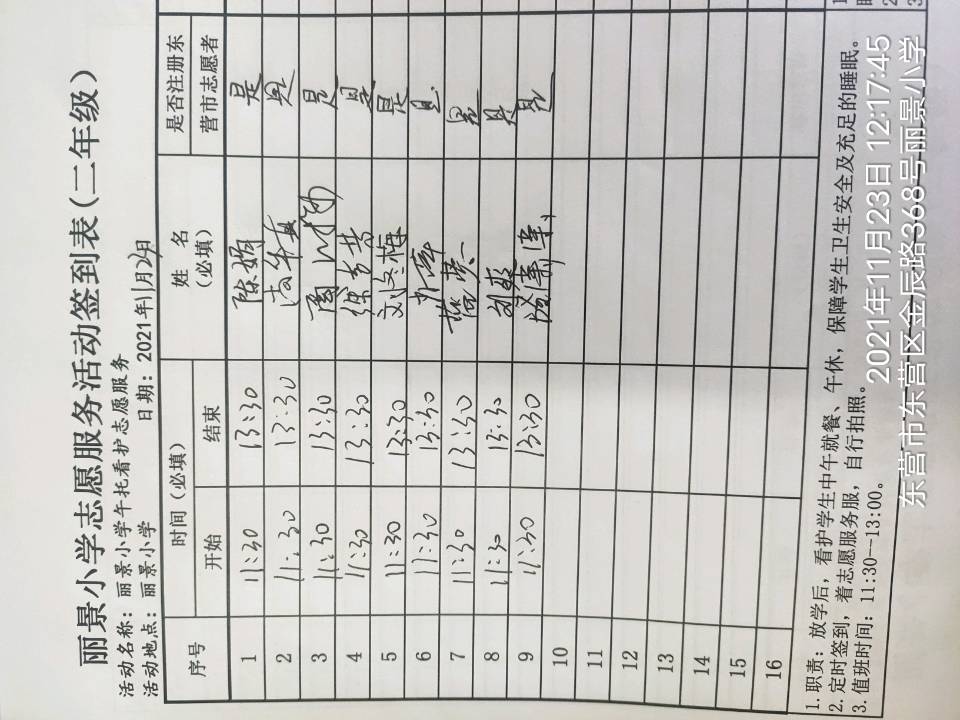 丽景小学志愿服务活动签到表（二年级）
活动名称：丽景小学午托看护志愿服务
活动地点：丽景小学 日期：2021年11月23日
序号 时间（必填） 姓名（必填） 是否注册东营市志愿者
开始 结束
1 11:30 13:30 陈娟 是
2 11:30 13:30 是
3 11:30 13:30 是
4 11:30 13:30 是
5 11:30 13:30 刘冬梅 是
6 11:30 13:30 是
7 11:30 13:30 是
8 11:30 13:30 是
9 11:30 13:30 是
10
11
12
13
14
15
16
1. 职责：放学后，看护学生中午就餐、午休，保障学生卫生安全及充足的睡眠。
2. 定时签到，着志愿服务服，自行拍照。
3. 值班时间：11:30--13:00。
2021年11月23日 12:17:45
东营市东营区金辰路368号丽景小学